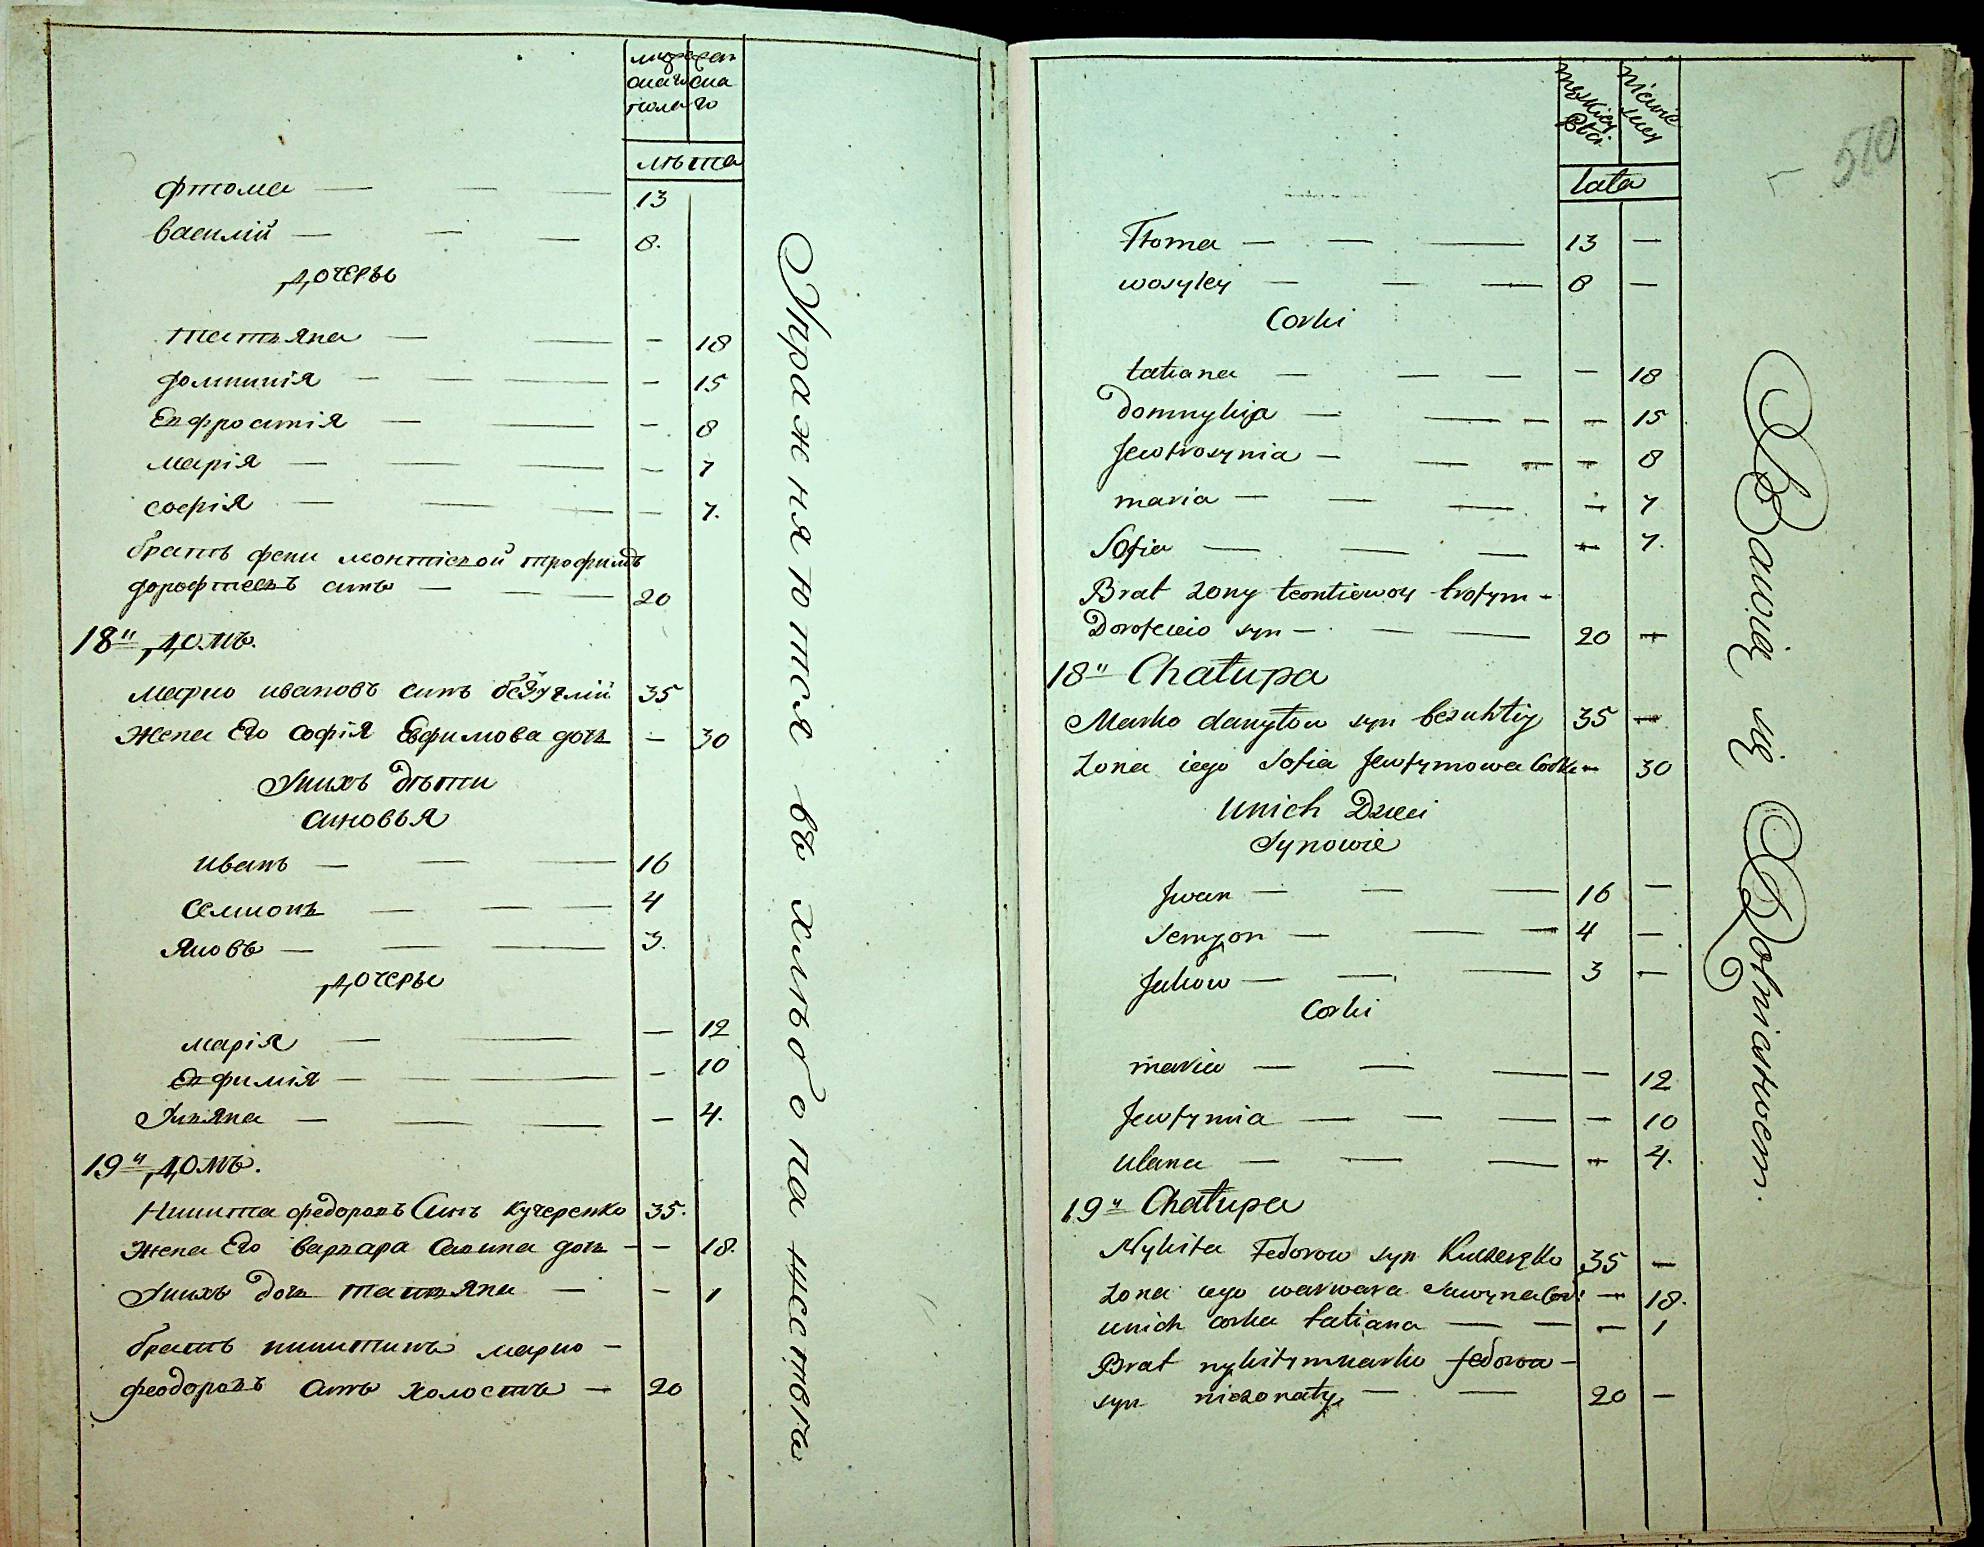 лѣта
Фтома — — — 13
Василій — — — 8.
Дочеры
Татьяна — — — 18
Домникія — — — — 15
Евфросинія — — — — 8
Марія — — — — 7
Софія — — — — 7.
братъ Трофимъ
Дорофтеевъ синъ — — — 20
18й Домъ.
Марко Ивановъ синъ безуглій 35
Жена Его Софія Евфимова дочь — 30
У нихъ дѣти
Синовья
Иванъ — — — 16
Семионъ — — — 4
Яковъ — — — 3.
Дочеры
Марія — — — 12
Евфимія — — — — 10
Ульяна — — — — 4.
19й Домъ.
Никита федоровъ Синъ Кучеренко 35.
Жена Его Варвара Савина дочь — — 18.
У нихъ дочь Татьяна — — 1
братъ никитинъ марко —
феодоровъ Синъ холостъ — 20
Упражняются въ хлѣбопашествѣ
męzkiey płci
lata
Ftoma — — — 13 —
wasyley — — — 8 —
Corki
tatiana — — — — 18
Domnykija — — — — 15
Jewfrosynia — — — — 8
maria — — — — 7
Sofia — — — — 7.
Brat zony leontiewoy trofym —
Dorofeuio syn — — — 20 —
18u Chałupa
Marko danyłow syn bezuhłiy 35 —
Zona iego Sofia Jewfymowa Corka — 30
unich Dzieci
Synowie
Jwan — — — 16 —
Semyon — — — 4 —
Jakow — — — 3 —
Corki
maria — — — — 12
Jewfymia — — — — 10
ulana — — — — 4.
19u Chałupa
Nykita Fedorow syn Kuczeręko 35 —
Zona iego warwara Sawyna Cor: — 18.
unich corka tatiana — — — 1
Brat nykity marko fedorow —
syn niezonaty — — 20 —
Bawią się Rolnictwem.
510